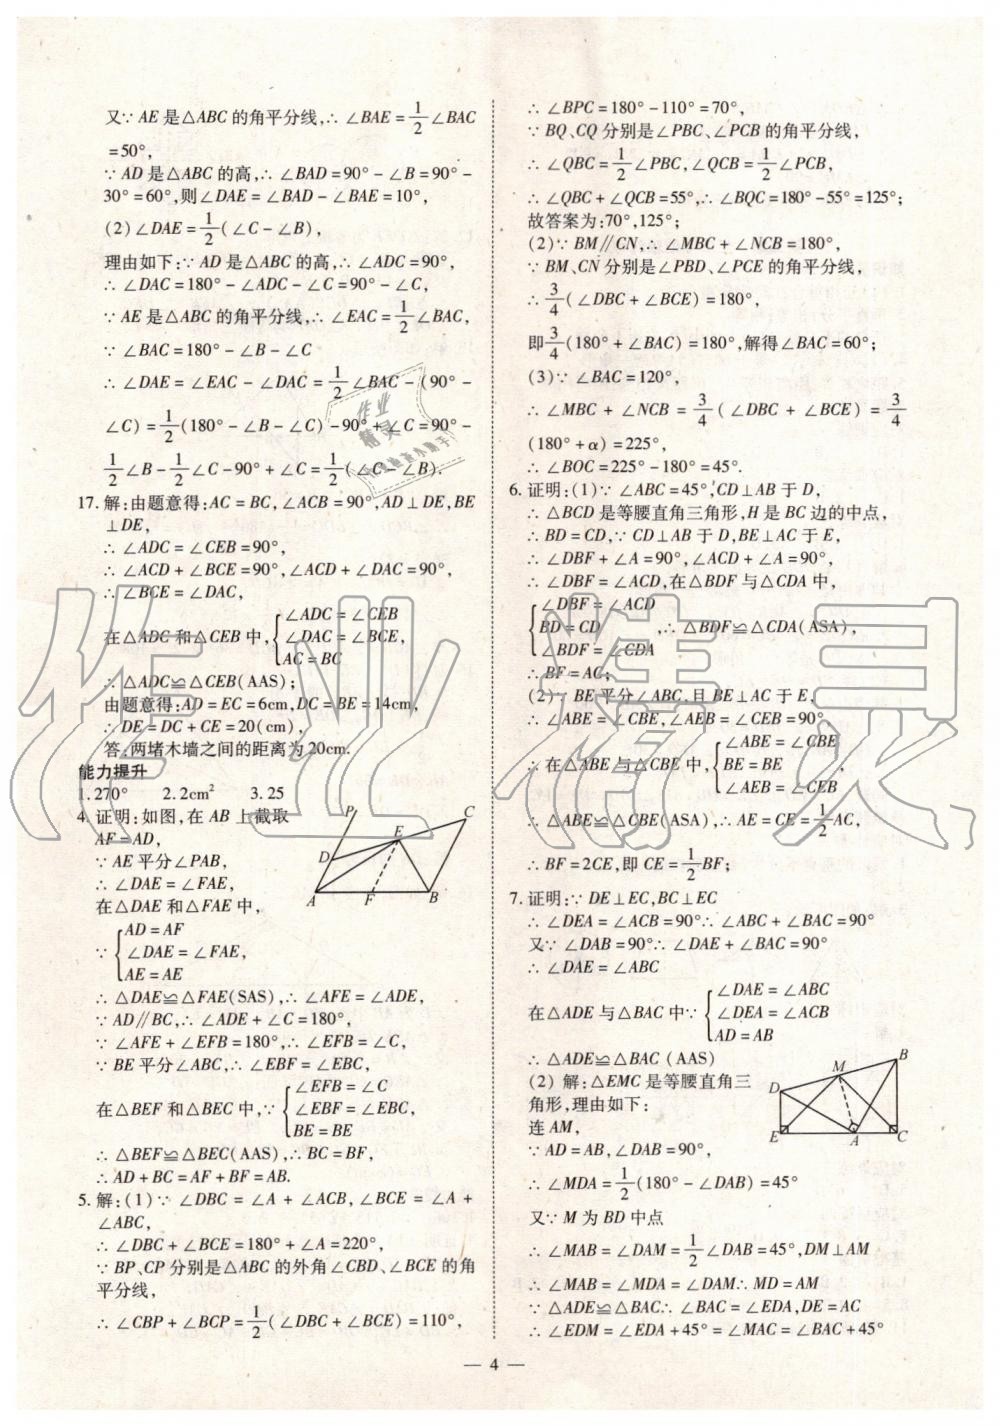 又∵ AE 是△ABC 的角平分线,∴ ∠BAE = 1/2 ∠BAC
=50°,
∵ AD 是△ABC 的高,∴ ∠BAD = 90° - ∠B = 90° -
30° = 60°,则∠DAE = ∠BAD - ∠BAE = 10°,
(2) ∠DAE = 1/2 ( ∠C - ∠B),
理由如下:∵ AD 是△ABC 的高,∴ ∠ADC = 90°,
∴ ∠DAC = 180° - ∠ADC - ∠C = 90° - ∠C,
∵ AE 是△ABC 的角平分线,∴ ∠EAC = 1/2 ∠BAC,
∵ ∠BAC = 180° - ∠B - ∠C
∴ ∠DAE = ∠EAC - ∠DAC = 1/2 ∠BAC - (90° -
∠C) = 1/2 (180° - ∠B - ∠C) - 90° + ∠C = 90° -
1/2 ∠B - 1/2 ∠C - 90° + ∠C = 1/2 ( ∠C - ∠B).
17. 解:由题意得:AC = BC, ∠ACB = 90°, AD⊥DE, BE
⊥DE,
∴ ∠ADC = ∠CEB = 90°,
∴ ∠ACD + ∠BCE = 90°, ∠ACD + ∠DAC = 90°,
∴ ∠BCE = ∠DAC,
在△ADC 和△CEB 中, { ∠ADC = ∠CEB
∠DAC = ∠BCE,
AC = BC
∴ △ADC≌△CEB(AAS);
由题意得:AD = EC = 6cm, DC = BE = 14cm,
∴ DE = DC + CE = 20(cm),
答:两堵木墙之间的距离为 20cm.
能力提升
1. 270° 2. 2cm² 3. 25
4. 证明:如图,在 AB 上截取
AF = AD,
∵ AE 平分∠PAB,
∴ ∠DAE = ∠FAE,
在△DAE 和△FAE 中,
∵ { AD = AF
∠DAE = ∠FAE,
AE = AE
∴ △DAE≌△FAE(SAS),∴ ∠AFE = ∠ADE,
∵ AD∥BC,∴ ∠ADE + ∠C = 180°,
∵ ∠AFE + ∠EFB = 180°,∴ ∠EFB = ∠C,
∵ BE 平分∠ABC,∴ ∠EBF = ∠EBC,
在△BEF 和△BEC 中,∵ { ∠EFB = ∠C
∠EBF = ∠EBC,
BE = BE
∴ △BEF≌△BEC(AAS),∴ BC = BF,
∴ AD + BC = AF + BF = AB.
5. 解:(1)∵ ∠DBC = ∠A + ∠ACB, ∠BCE = ∠A +
∠ABC,
∴ ∠DBC + ∠BCE = 180° + ∠A = 220°,
∵ BP、CP 分别是△ABC 的外角∠CBD、∠BCE 的角
平分线,
∴ ∠CBP + ∠BCP = 1/2 ( ∠DBC + ∠BCE) = 110°,
P
E
C
D
A
F
B
∴ ∠BPC = 180° - 110° = 70°,
∵ BQ、CQ 分别是∠PBC、∠PCB 的角平分线,
∴ ∠QBC = 1/2 ∠PBC, ∠QCB = 1/2 ∠PCB,
∴ ∠QBC + ∠QCB = 55°,∴ ∠BQC = 180° - 55° = 125°;
故答案为:70°,125°;
(2)∵ BM∥CN,∴ ∠MBC + ∠NCB = 180°,
∵ BM、CN 分别是∠PBD、∠PCE 的角平分线,
∴ 3/4 ( ∠DBC + ∠BCE) = 180°,
即 3/4 (180° + ∠BAC) = 180°,解得∠BAC = 60°;
(3)∵ ∠BAC = 120°,
∴ ∠MBC + ∠NCB = 3/4 ( ∠DBC + ∠BCE) = 3/4
(180° + α) = 225°,
∴ ∠BOC = 225° - 180° = 45°.
6. 证明:(1)∵ ∠ABC = 45°, CD⊥AB 于 D,
∴ △BCD 是等腰直角三角形, H 是 BC 边的中点,
∴ BD = CD,∵ CD⊥AB 于 D, BE⊥AC 于 E,
∴ ∠DBF + ∠A = 90°, ∠ACD + ∠A = 90°,
∴ ∠DBF = ∠ACD,在△BDF 与△CDA 中,
{ ∠DBF = ∠ACD
BD = CD ,∴ △BDF≌△CDA(ASA),
∠BDF = ∠CDA
∴ BF = AC;
(2)∵ BE 平分∠ABC,且 BE⊥AC 于 E,
∴ ∠ABE = ∠CBE, ∠AEB = ∠CEB = 90°
∴ 在△ABE 与△CBE 中, { ∠ABE = ∠CBE
BE = BE ,
∠AEB = ∠CEB
∴ △ABE≌△CBE(ASA),∴ AE = CE = 1/2 AC,
∴ BF = 2CE,即 CE = 1/2 BF;
7. 证明:∵ DE⊥EC, BC⊥EC
∴ ∠DEA = ∠ACB = 90°∴ ∠ABC + ∠BAC = 90°
又∵ ∠DAB = 90°∴ ∠DAE + ∠BAC = 90°
∴ ∠DAE = ∠ABC
在△ADE 与△BAC 中∵ { ∠DAE = ∠ABC
∠DEA = ∠ACB
AD = AB
∴ △ADE≌△BAC (AAS)
(2) 解:△EMC 是等腰直角三
角形,理由如下:
连 AM,
∵ AD = AB, ∠DAB = 90°,
∴ ∠MDA = 1/2 (180° - ∠DAB) = 45°
又∵ M 为 BD 中点
∴ ∠MAB = ∠DAM = 1/2 ∠DAB = 45°, DM⊥AM
∴ ∠MAB = ∠MDA = ∠DAM∴ MD = AM
∵ △ADE≌△BAC∴ ∠BAC = ∠EDA, DE = AC
∴ ∠EDM = ∠EDA + 45° = ∠MAC = ∠BAC + 45°
B
M
D
E
A
C
— 4 —
作业精灵
作业
精灵